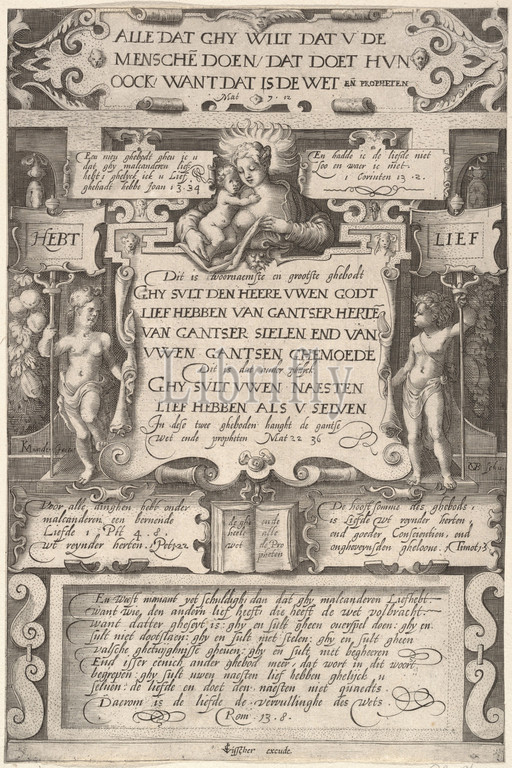 ALLE DAT GHY WILT DAT V DE
MENSCHẼ DOEN / DAT DOET HVN
OOCK / WANT DAT IS DE WET EÑ PROPHETEN
Mat 7. 12
Een niew ghebodt gheve ic u
dat ghy malcanderen lief
hebt; ghelyck ick u Lief
ghehadt hebbe Joan 13.34
En hadde ic de liefde niet
soo en waer ic niet.
1 Corinten 13.2.
HEBT
LIEF
Dit is t'voornaemste en grootste ghebodt
GHY SVLT DEN HEERE VWEN GODT
LIEF HEBBEN VAN GANTSER HERTE
VAN GANTSER SIELEN END VAN
VWEN GANTSEN GHEMOEDE
Dit is dat ander
GHY SVLT VWEN NAESTEN
LIEF HEBBEN ALS V SELVEN
In dese twee gheboden hanght de gantse
Wet ende propheten Mat 22 36
KMander
Voor alle dinghen hebt onder
malcanderen een bernende
Liefde 1 Pet 4.8.
wt reynder herten 1 Pet 1 22
de ghe
heele
wet
ende
alle
de Pro
pheten
De hooft somme des ghebods
is Liefde wt reynder herten,
end goeder Conscientien, end
ongheveynsden gheloove. 1 Timot 1 5
En weest niemant yet schuldigh dan dat ghy malcanderen Liefhebt:
want wie den andern lief heeft die heeft de wet volbracht.
want datter gheseyt is: ghy en sult gheen overspel doen: ghy en
sult niet dootslaen: ghy en sult niet stelen: ghy en sult gheen
valsche ghetuyghnisse gheven: ghy en sult niet begheeren
End isser eenich ander ghebod meer, dat wort in dit woort
begrepen: ghy sult uwen naesten lief hebben ghelyck u
selven: de liefde en doet den naesten niet quaedts.
Daerom is de liefde de vervullinghe des Wets.
Rom. 13.8.
Visscher excude.